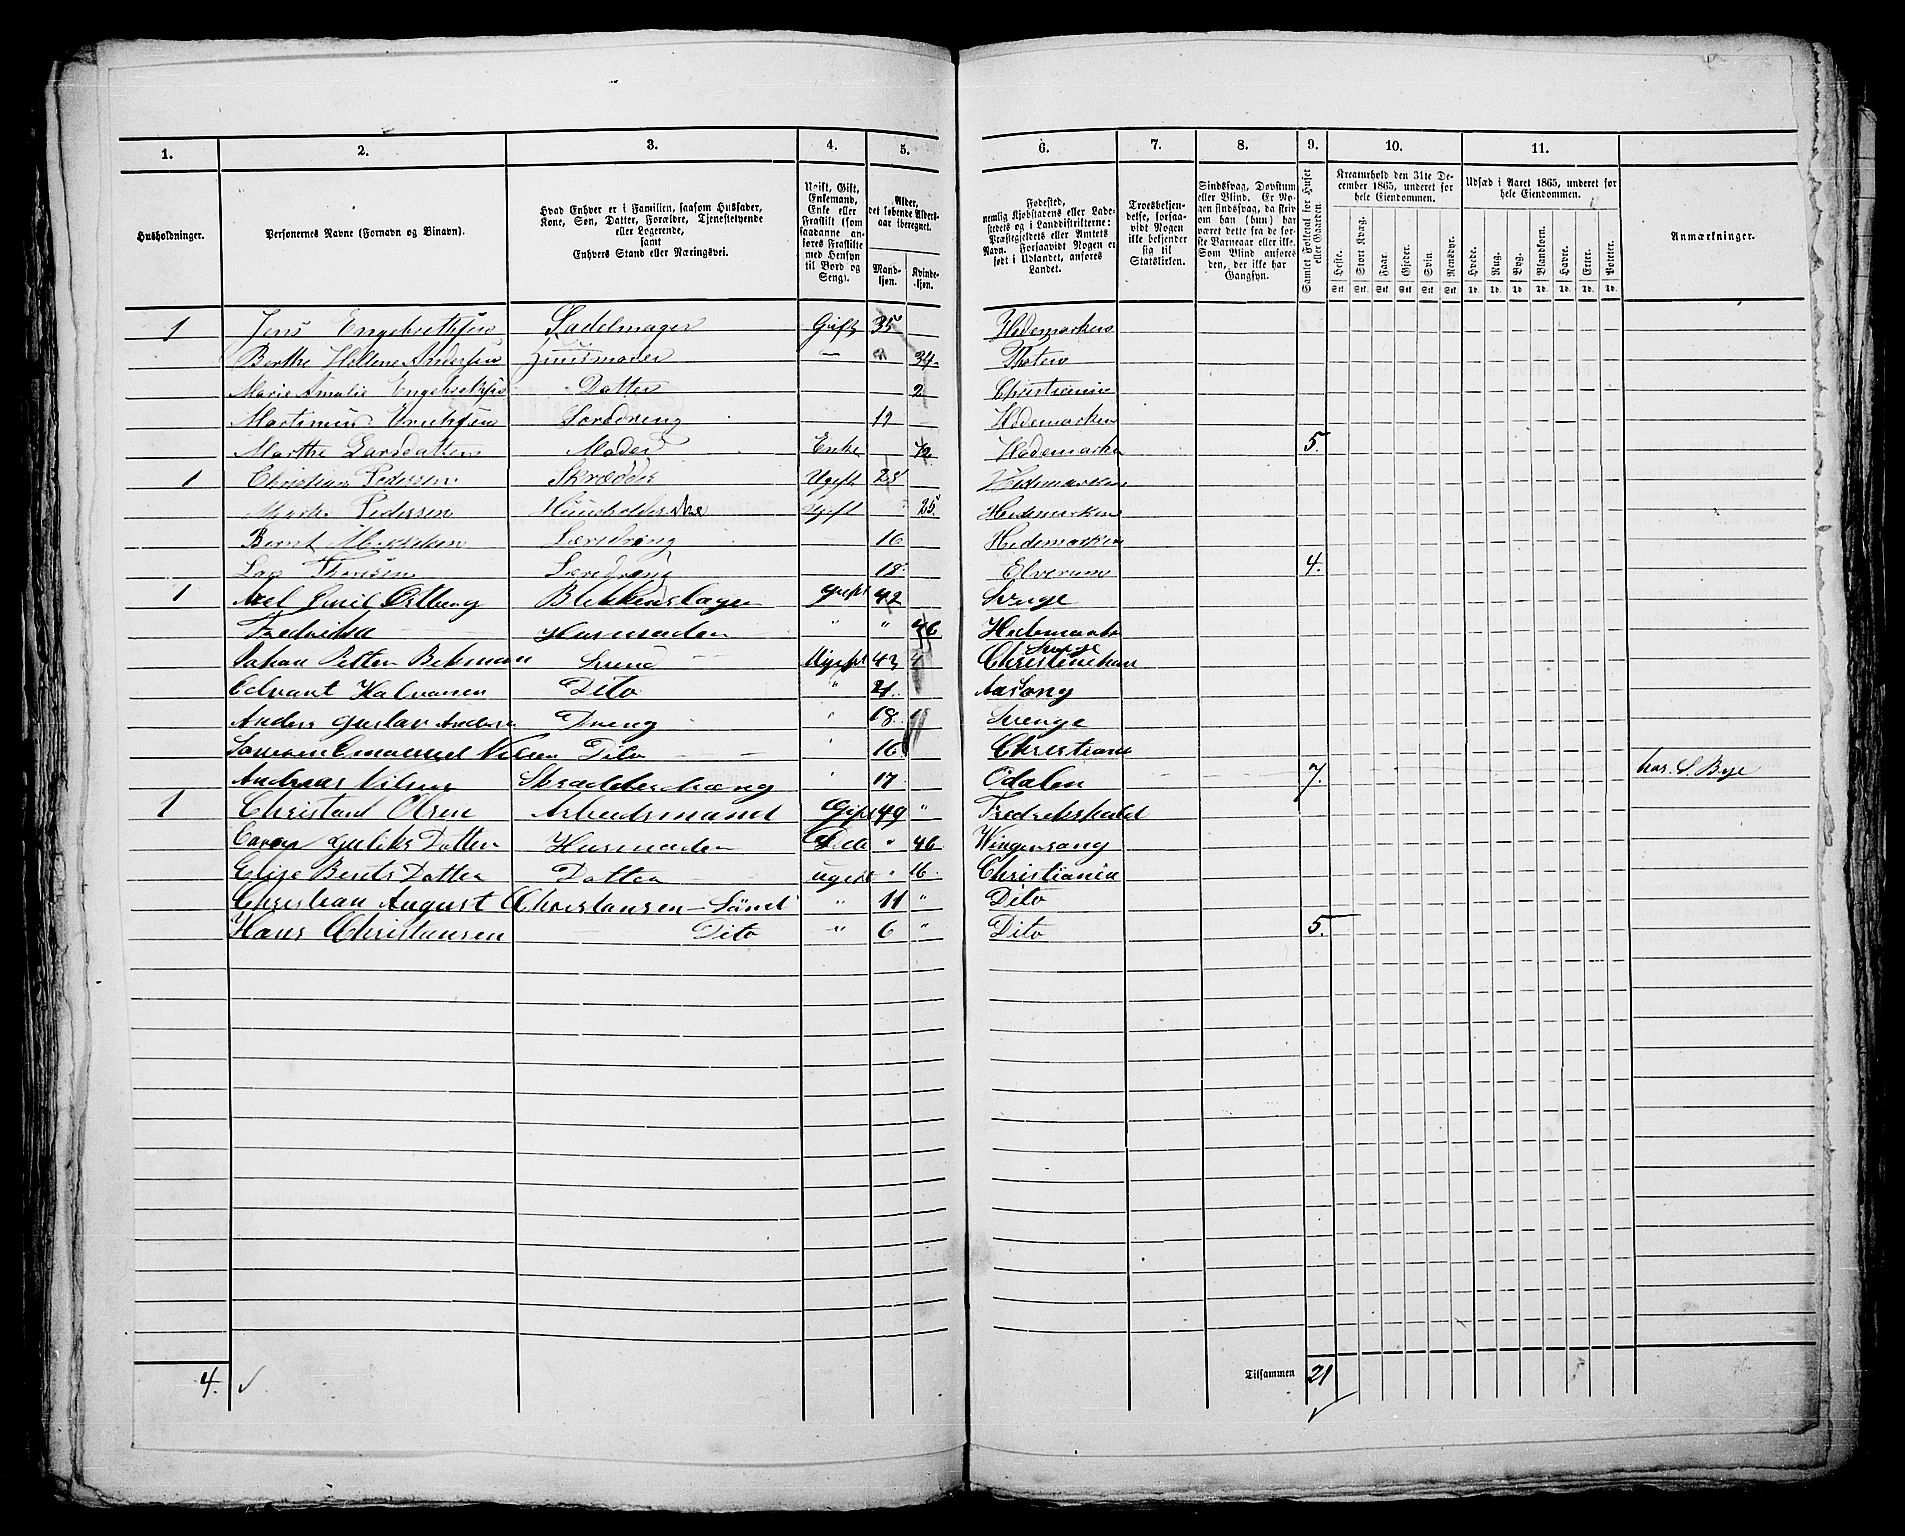 1. 2. 3. 4. 5. 6. 7. 8. 9. 10. 11.
Husholdninger.
Personernes Navne (Fornavn og Binavn).
Hvad Enhver er i Familien, saasom Husfader,
Kone, Søn, Datter, Forældre, Tjenestetyende
eller Logerende,
samt
Enhvers Stand eller Næringsvei.
Ugift, Gift,
Enkemand,
Enke eller
Fraskilt (som
saadanne an-
føres Fraskilte
med Hensyn
til Bord og
Seng).
Alder,
det løbende Alders-
aar iberegnet.
Mand-
kjøn.
Kvinde-
kjøn.
Fødested,
nemlig Kjøbstadens eller Lade-
stedets og i Landdistrikterne:
Præstegjeldets eller Amtets
Navn. Forsaavidt Nogen er
født i Udlandet, anføres
Landet.
Troesbekjen-
delse, forsaa-
vidt Nogen
ikke bekjender
sig til
Statskirken.
Sindssvag, Døvstum
eller Blind. Er No-
gen sindssvag, da skriv
om han (hun) har
været dette fra de før-
ste Barneaar eller ikke.
Som Blind anføres
den, der ikke har
Gangsyn.
Samlet Folketal for Huset
eller Gaarden
Kreaturhold den 31te De-
cember 1865, underet for
hele Eiendommen.
Heste. Stort Kvæg. Faar. Gjeder. Svin. Rensdyr.
Stk. Stk. Stk. Stk. Stk. Stk.
Udsæd i Aaret 1865, underet for
hele Eiendommen.
Hvede. Rug. Byg. Blandkorn. Havre. Erter. Poteter.
Td. Td. Td. Td. Td. Td. Td.
Anmærkninger.
1 Jens Engebrethsen Sadelmager Gift 35 Hedemarken
Berthe Hellene Andersen Huusmoder — 34 Thoten
Marie Amalie Engebrethsen Datter 2 Christiania
Martinus Erichsen Læredreng Hedemarken
Marthe Larsdatter Moder Enke 72 Hedemarken 5.
1 Christian Pedersen Skrædder Ugift Hedemarken
Marthe Pedersen Huusholderske Ugift 25 Hedemarken
Bernt Mikkelsen Læredreng 16 Hedemarken
Lars Thoresen Læredreng 18 Elverum 4.
1 Axel Emil Østberg Blikkenslager gift 42 Sverge
Fredrikka Husmoder " " 46 Hedemarken
Johan Petter Bekman Svend Ugift 43 Christinehan Sverge
Edvart Halvorsen Dito " 21 Aasong
Anders Gustav Anderse Dreng " 18 Sverge
Emanuel Nilsen Dito " 16 Christiania
Andreas Nilsen Skrædder " 17 Odalen 7. hos. S. Bye
1 Christand Olsen Arbeidsmand Gift 49 " Fredrikshald
Caren Guliks Datter Husmoder Dito " 46 Wingersong
Elise Bents Datter Datter ugift " 16 Christiania
Christian August Christansen Sönd " 11 " Dito
Hans Christansen Dito " 6 " Dito 5.
4. Tilsammen 21